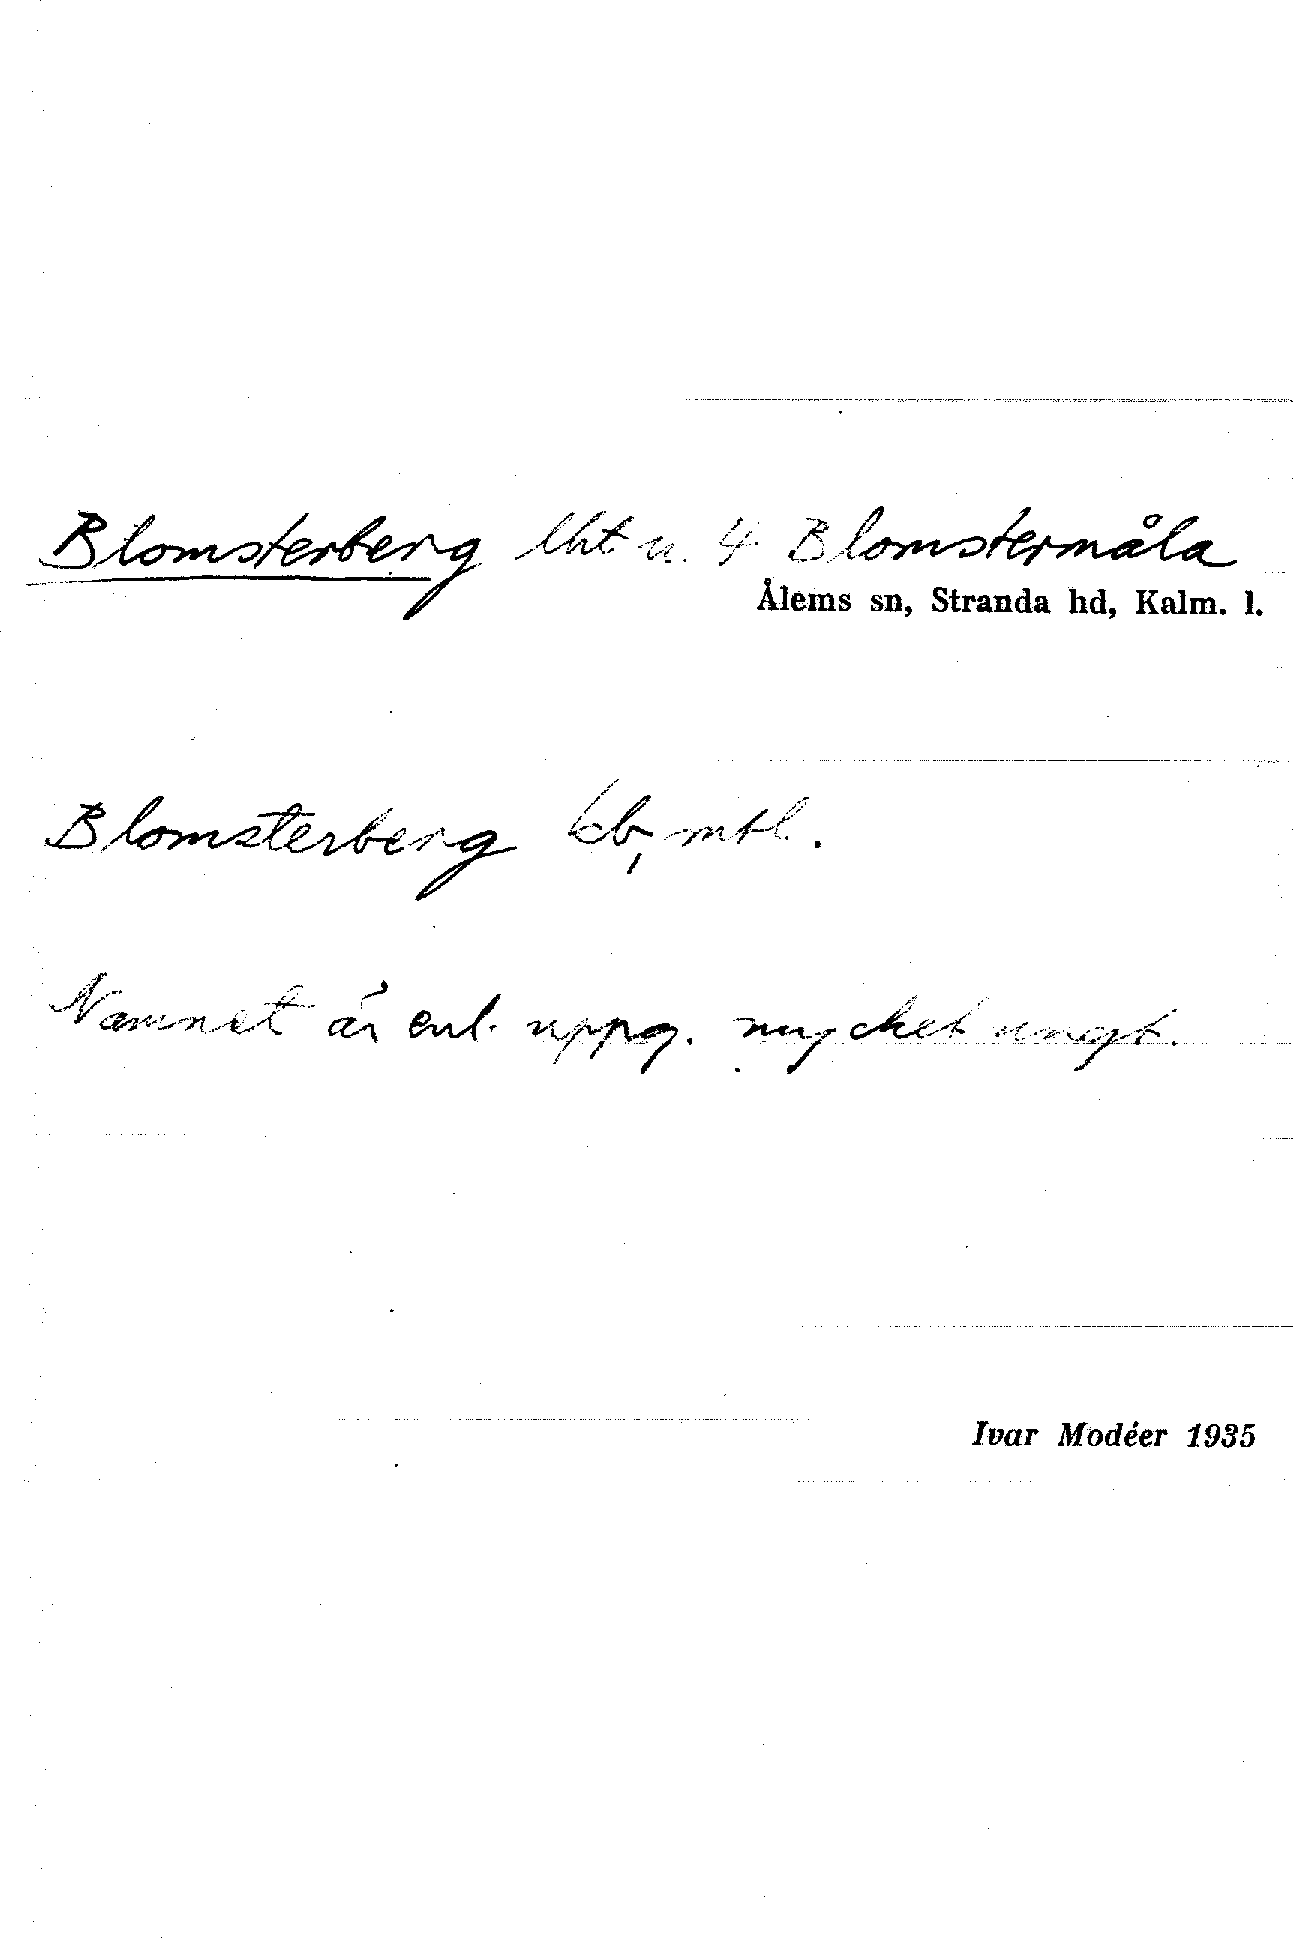 Blomsterberg lht u. 4 Blomstermåla
Ålems sn, Stranda hd, Kalm. l.
Blomsterberg kb, mtl.
Namnet är enl. uppg. mycket ungt.
Ivar Modéer 1935